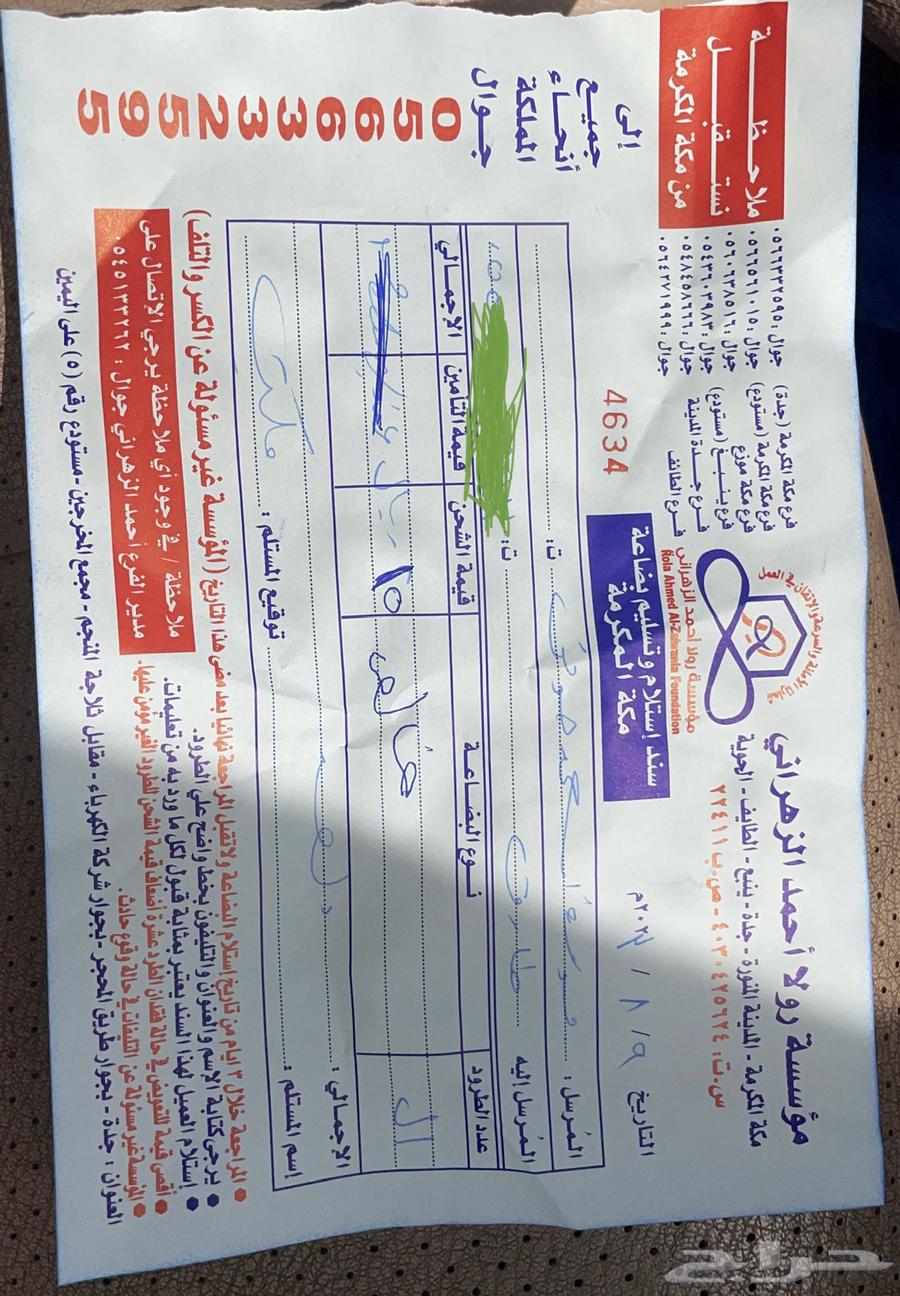 مؤسسة رولا أحمد الزهراني
مكة المكرمة - المدينة المنورة - جدة - ينبع - الطائف - الحوية
س.ت: ٤٠٣٠٤٢٥٦٢٤ - ص.ب ٢٢٤١١
مؤسسة رولا أحمد الزهراني
Rola Ahmed Al-Zahrania Foundation
فرع مكة المكرمة (جدة) جوال: ٠٥٦٦٣٣٢٥٩٥
فرع مكة المكرمة (مستودع) جوال: ٠٥٦٦٥٦١٠١٥
فرع مكة موزع جوال: ٠٥٦٠٦٣٨٥١٦
فرع ينبع (مستودع) جوال: ٠٥٤٣٦٠٣٩٨٣
فرع جدة المدينة جوال: ٠٥٤٨٤٥٨٦٦٦
فرع الطائف جوال: ٠٥٦٤٢٧١٩٩
ملاحظة
نستقبل
من مكة المكرمة
إلى
جميع
أنحاء
المملكة
جوال
0566332595
التاريخ ٩ / ٨ / ٢٠٢م
سند إستلام وتسليم بضاعة
مكة المكرمة
4634
المُرسل: ت:
المُرسل إليه طارق ت:
عدد الطرود نوع البضاعة قيمة الشحن قيمة التأمين الاجمالي
١٥ ريال
الاجمالي:
إسم المستلم: توقيع المستلم:
• المراجعة خلال ٣ ايام من تاريخ إستلام البضاعة ولا تقبل المراجعة نهائيا بعد مضى هذا التاريخ (المؤسسة غير مسئولة عن الكسر والتلف)
• يرجى كتابة الإسم والعنوان والتليفون بخط واضح على الطرود.
• إستلام العميل لهذا السند يعتبر بمثابة قبول لكل ما ورد به من تعليمات.
• أقصى قيمة للتعويض في حالة فقدان الطرد عشرة أضعاف قيمة الشحن للطرود الغير مؤمن عليها.
• المؤسسة غير مسئولة عن التلفيات في حالة وقوع حادث.
ملاحظة / في وجود أي ملاحظة يرجي الإتصال على
مدير الفرع أحمد الزهراني جوال: ٠٥٤٥١٣٣٢٦٢
العنوان: جدة - بجوار طريق المحجر - بجوار شركة الكهرباء - مقابل ثلاجة المنجم - مجمع المخرجين - مستودع رقم (٥) على اليمين
حراج